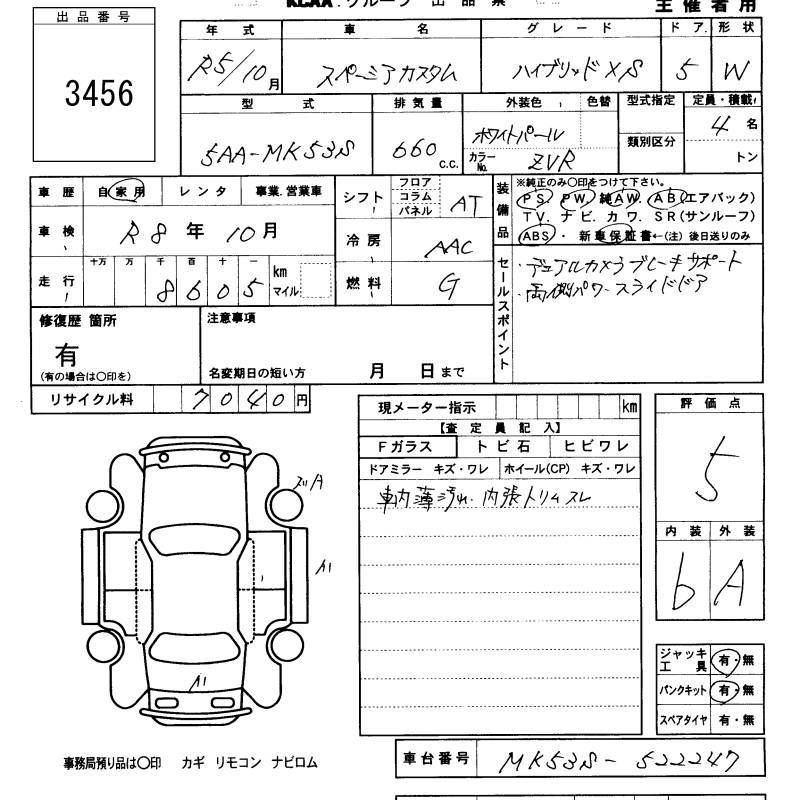 KCAA グループ 出品票
主催者用
出品番号
3456
年式 車名 グレード ドア 形状
R5/10月 スペーシアカスタム ハイブリッドXS 5 W
型式 排気量 外装色 色替 型式指定 定員・積載
5AA-MK53S 660 c.c. ホワイトパール 4名
カラーNo. ZVR 類別区分 トン
車歴 自家用 レンタ 事業.営業車
シフト フロア コラム パネル AT
装備品 ※純正のみ〇印をつけて下さい。
PS PW 純AW. AB(エアバック)
TV. ナビ. カワ. SR(サンルーフ)
ABS・新車保証書←(注)後日送りのみ
車検 R8年10月
冷房 AAC
走行 十万 万 千 百 十 一
8605 km マイル
燃料 G
セールスポイント
・デュアルカメラブレーキサポート
・両側パワースライドドア
修復歴 箇所
有
(有の場合は〇印を)
注意事項
名変期日の短い方 月 日まで
リサイクル料 7040円
現メーター指示 km
【査定員記入】
Fガラス トビ石 ヒビワレ
ドアミラー キズ・ワレ ホイール(CP) キズ・ワレ
車内薄汚れ. 内張トリムスレ
評価点
5
内装 外装
b A
A
A1
A1
ジャッキ工具 有・無
パンクキット 有・無
スペアタイヤ 有・無
事務局預り品は〇印 カギ リモコン ナビロム
車台番号 MK53S-522247